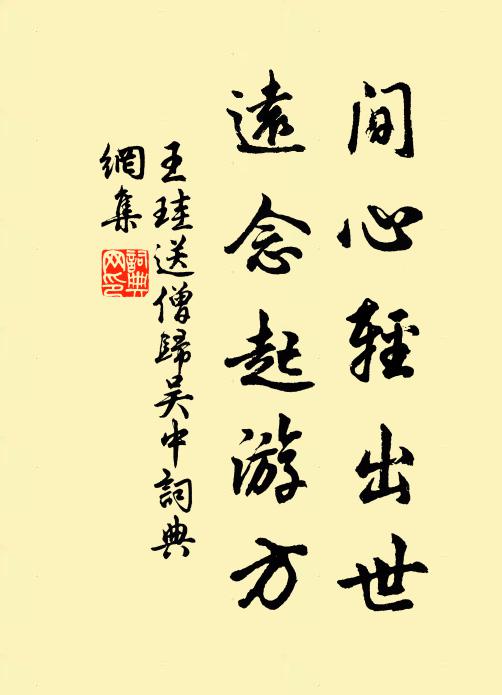 间心輕出世
遠念起游方
王珪送僧歸吴中詞典
網集
詞典
网印